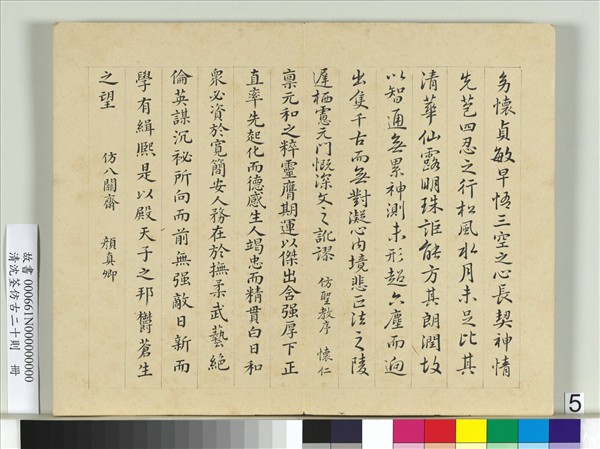 幼懷貞敏早悟三空之心長契神情
先苞四忍之行松風水月未足比其
清華仙露明珠詎能方其朗潤故
以智通無累神測未形超六塵而迥
出隻千古而無對凝心內境悲正法之陵
遲栖慮元門慨深文之訛謬 仿聖教序 懷仁
稟元和之粹靈膺期運以傑出含强厚下正
直率先起化而德感生人竭忠而精貫白日和
衆必資於寬簡安人務在於撫柔武藝絕
倫英謀沉祕所向而前無强敵日新而
學有緝熙是以殿天子之邦欎蒼生
之望 仿八關齋 顏真卿
故書 000661N000000000
清沈荃仿古二十則 冊
5